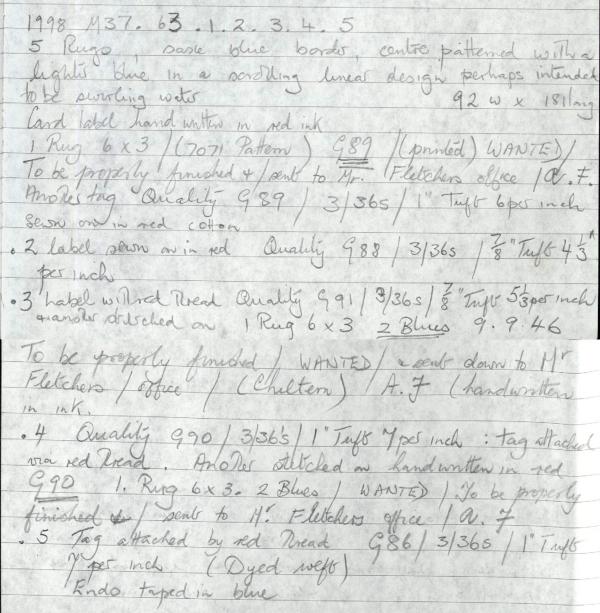 1998 M37. 63 .1.2.3.4.5
5 Rugs, dark blue border, centre patterned with a
lighter blue in a scrolling linear design perhaps intended
to be swirling water 92 w x 181 long
Card label hand written in red ink
1 Rug 6 x 3 / (7071 Pattern) G89 / (printed) WANTED /
To be properly finished & / sent to Mr. Fletchers office / A.F.
Another tag Quality G89 / 3/36s / 1" Tuft 6 per inch
sewn on in red cotton
.2 label sewn on in red Quality G88 / 3/36s / 7/8" Tuft 4 1/3
per inch
.3 Label with red Thread Quality G91 / 3/36s / 7/8" Tuft 5 1/3 per inch
& another stitched on 1 Rug 6 x 3 2 Blues 9.9.46
To be properly finished / WANTED / & sent down to Mr
Fletchers / office / (Chiltern) / A.F (handwritten
in ink.
.4 Quality G90 / 3/36's / 1" Tuft 7 per inch : tag attached
via red Thread. Another stitched on handwritten in red
G90 1. Rug 6 x 3. 2 Blues / WANTED / To be properly
finished & / sent to Mr. Fletchers office / A.F
.5 Tag attached by red Thread G86 / 3/36s / 1" Tuft
7 per inch (Dyed weft)
Ends taped in blue